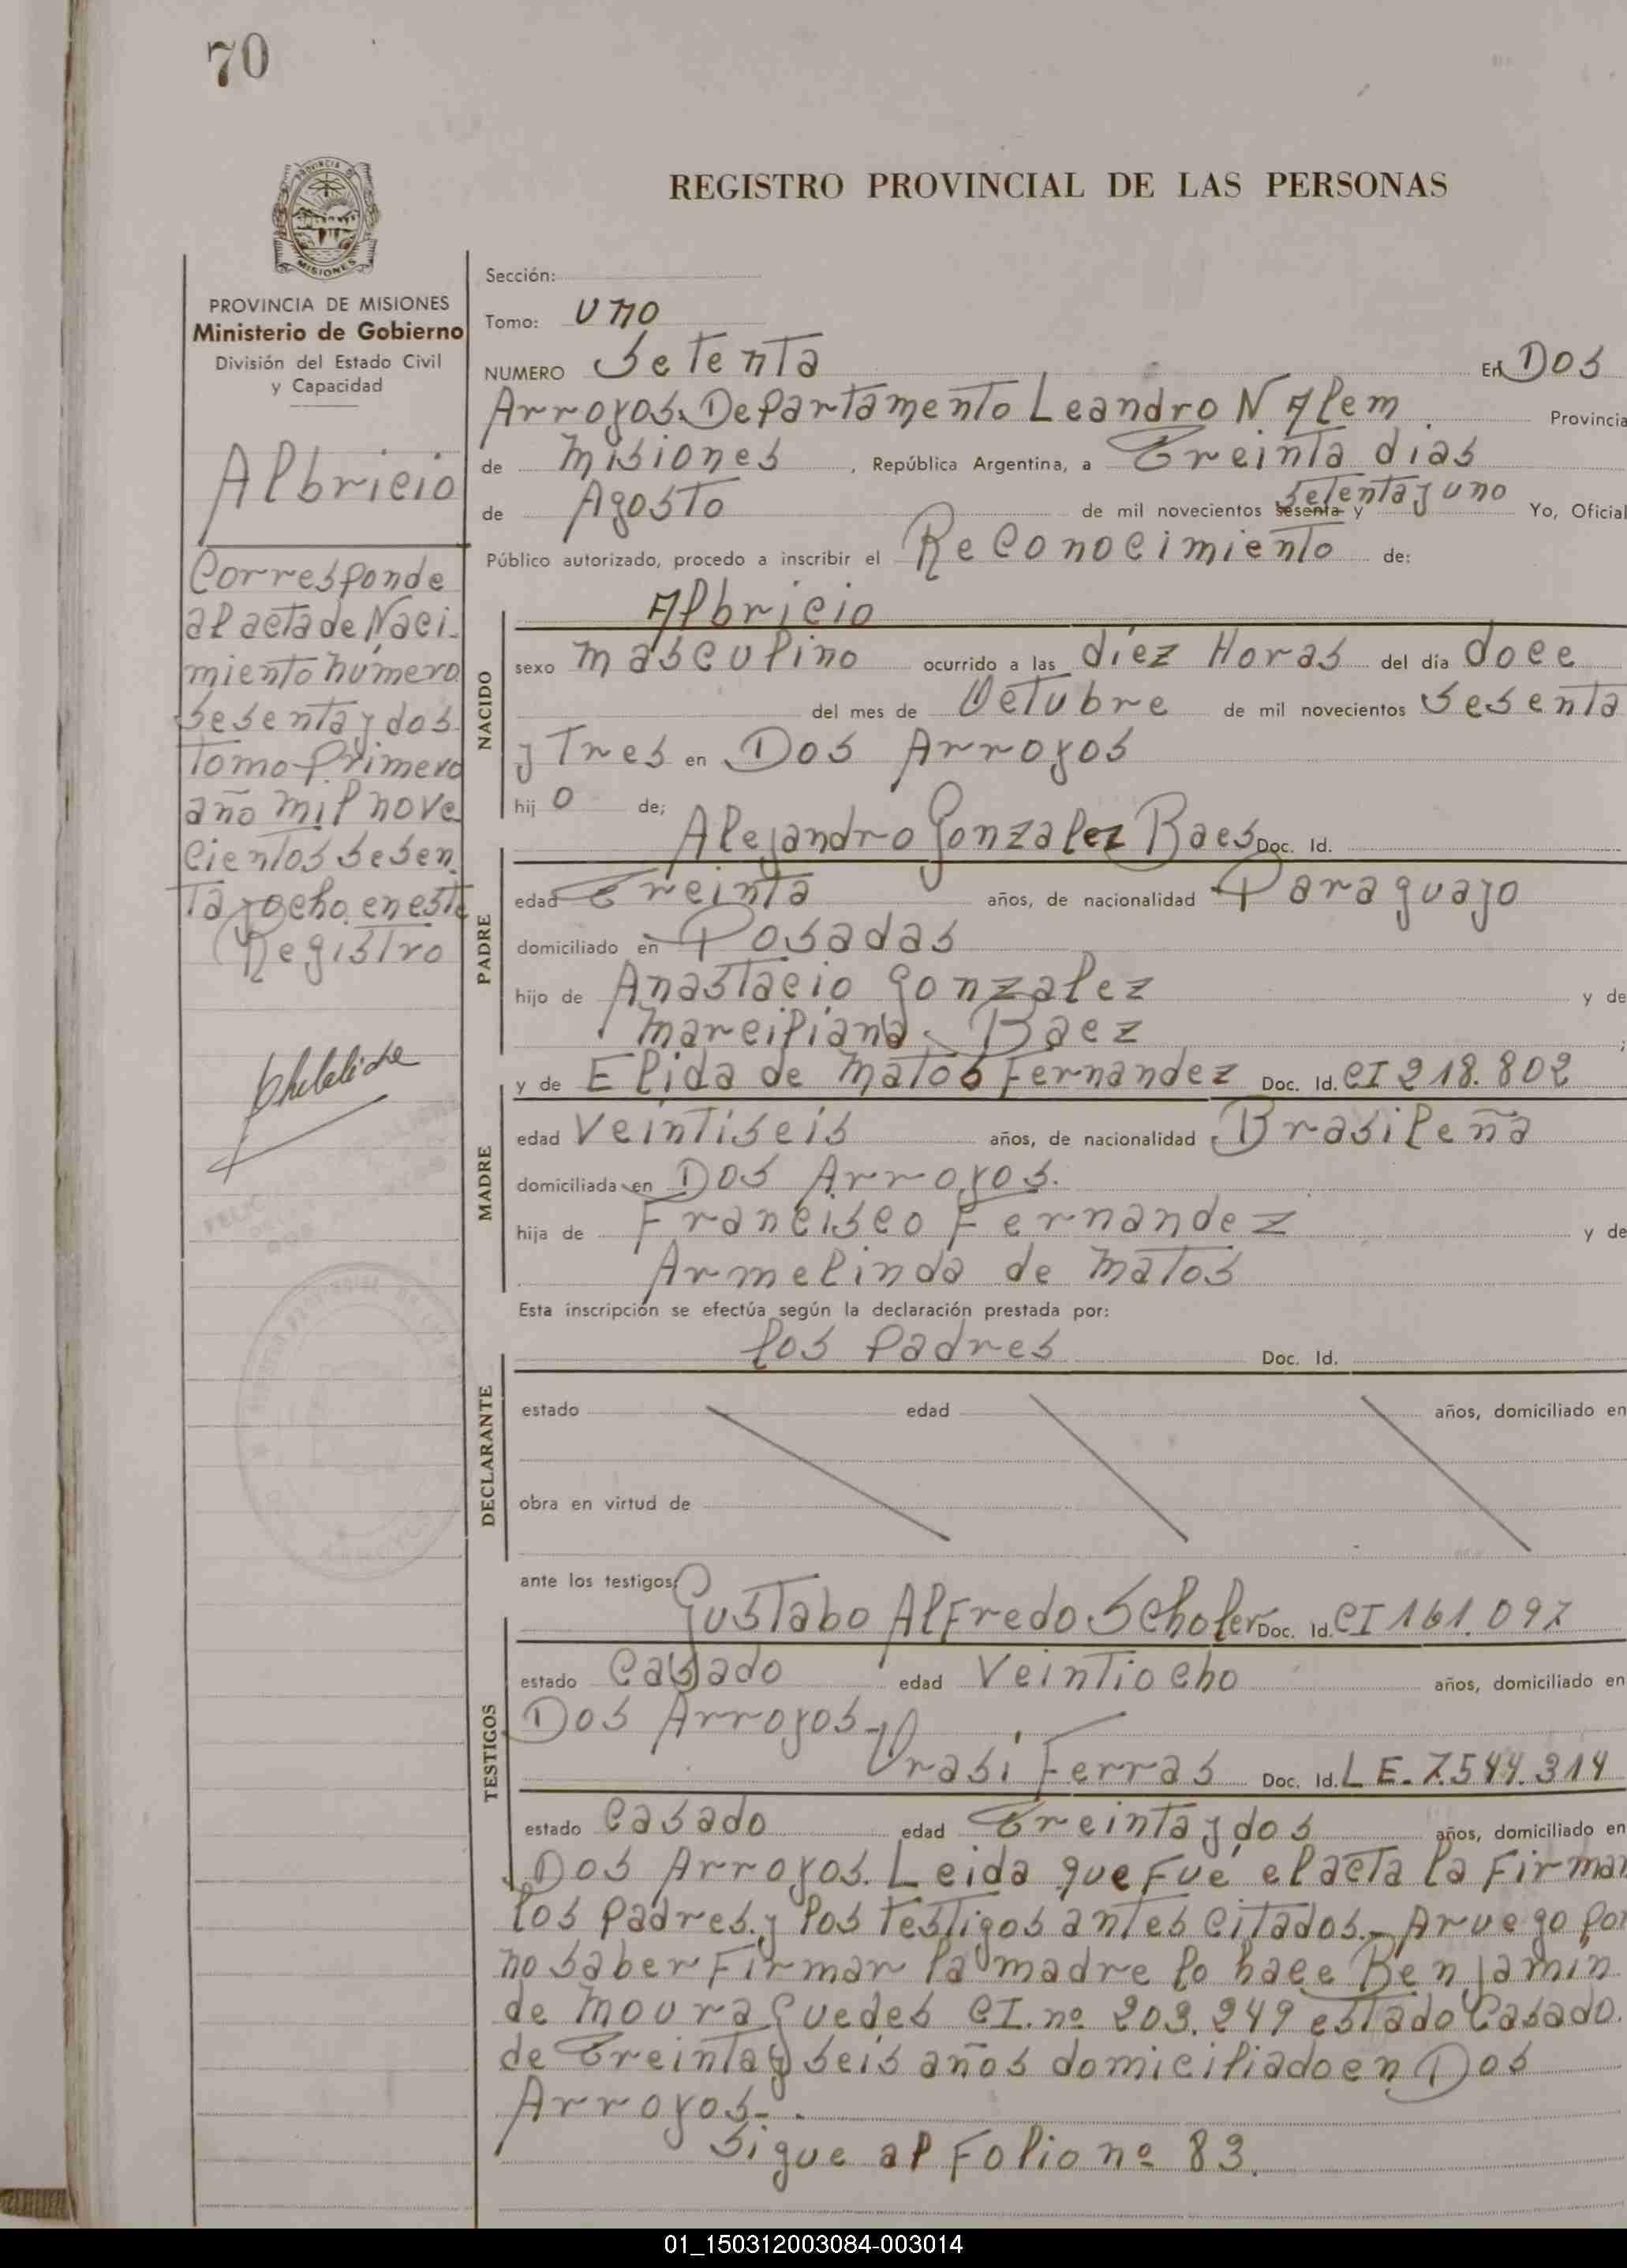 70
PROVINCIA DE MISIONES
Ministerio de Gobierno
División del Estado Civil
y Capacidad
Albricio
Corresponde
al acta de Naci-
miento número
sesenta y dos
Tomo Primero
año mil nove
cientos sesen-
ta y ocho en este
Registro
REGISTRO PROVINCIAL DE LAS PERSONAS
Sección:
Tomo: uno
NUMERO Setenta En Dos
Arroyos Departamento Leandro N Alem Provincia
de Misiones, República Argentina, a Treinta dias
de Agosto de mil novecientos sesenta y setenta y uno Yo, Oficial
Público autorizado, procedo a inscribir el Reconocimiento de:
NACIDO
Albricio
sexo masculino ocurrido a las diez Horas del día doce
del mes de Octubre de mil novecientos sesenta
y Tres en Dos Arroyos
hijo de;
PADRE
Alejandro Gonzalez Baes Doc. Id.
edad Treinta años, de nacionalidad Paraguayo
domiciliado en Posadas
hijo de Anastacio Gonzalez y de
Marciliana Baez;
MADRE
y de Elida de Matos Fernandez Doc. Id. CI 218.802
edad Veintiseis años, de nacionalidad Brasileña
domiciliada en Dos Arroyos.
hija de Francisco Fernandez y de
Armelinda de Matos
Esta inscripción se efectúa según la declaración prestada por:
DECLARANTE
los Padres Doc. Id.
estado edad años, domiciliado en
obra en virtud de
ante los testigos:
TESTIGOS
Gustabo Alfredo Scholer Doc. Id. CI 161.097
estado Casado edad Veintiocho años, domiciliado en
Dos Arroyos-
Urasi Ferras Doc. Id. L E. 7.544.314
estado Casado edad Treinta y dos años, domiciliado en
Dos Arroyos. Leida que Fué el acta la Firman
los Padres y los testigos antes citados.- A ruego por
no saber Firmar la madre lo hace Benjamin
de Moura Guedes CI. nº 203.249 estado Casado.
de Treinta y seis años domiciliado en Dos
Arroyos.-
Sigue al Folio nº 83.
01_150312003084-003014